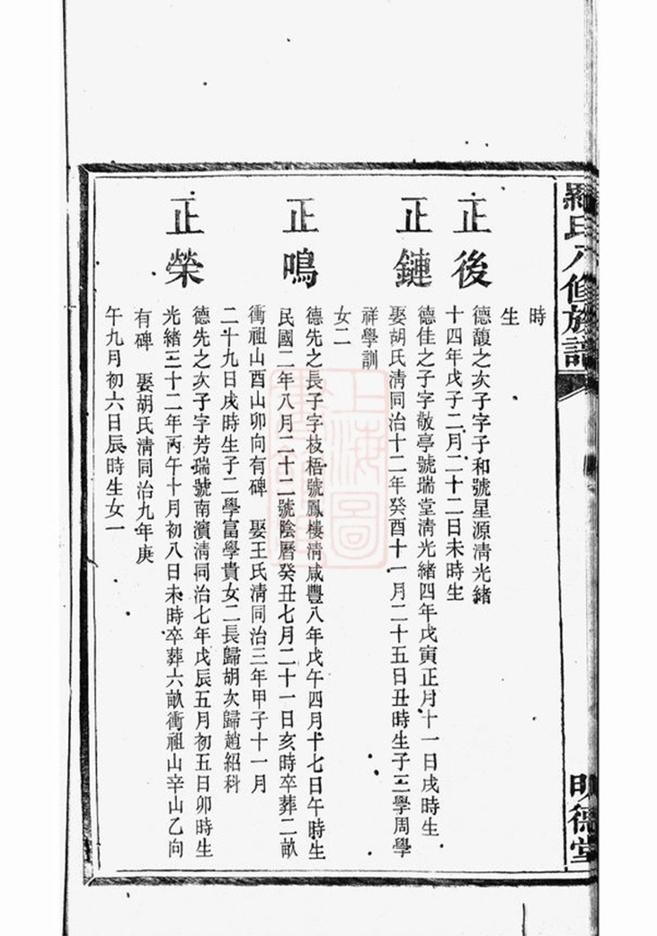 羅氏八修族譜
明德堂
時
生
正後
德馥之次子字子和號星源清光緒
十四年戊子二月二十二日未時生
正鏈
德佳之子字敬亭號瑞堂清光緒四年戊寅正月十一日戌時生
娶胡氏清同治十二年癸酉十一月二十五日丑時生子三學周學
祥學訓
女二
正鳴
德先之長子字枝梧號鳳樓清咸豐八年戊午四月十七日午時生
民國二年八月二十二號陰曆癸丑七月二十一日亥時卒葬二畝
衝祖山酉山卯向有碑 娶王氏清同治三年甲子十一月
二十九日戌時生子二學富學貴女二長歸胡次歸趙紹科
正榮
德先之次子字芳瑞號南濱清同治七年戊辰五月初五日卯時生
光緒三十二年丙午十月初八日未時卒葬六畝衝祖山辛山乙向
有碑 娶胡氏清同治九年庚
午九月初六日辰時生女一
上海圖
書館藏